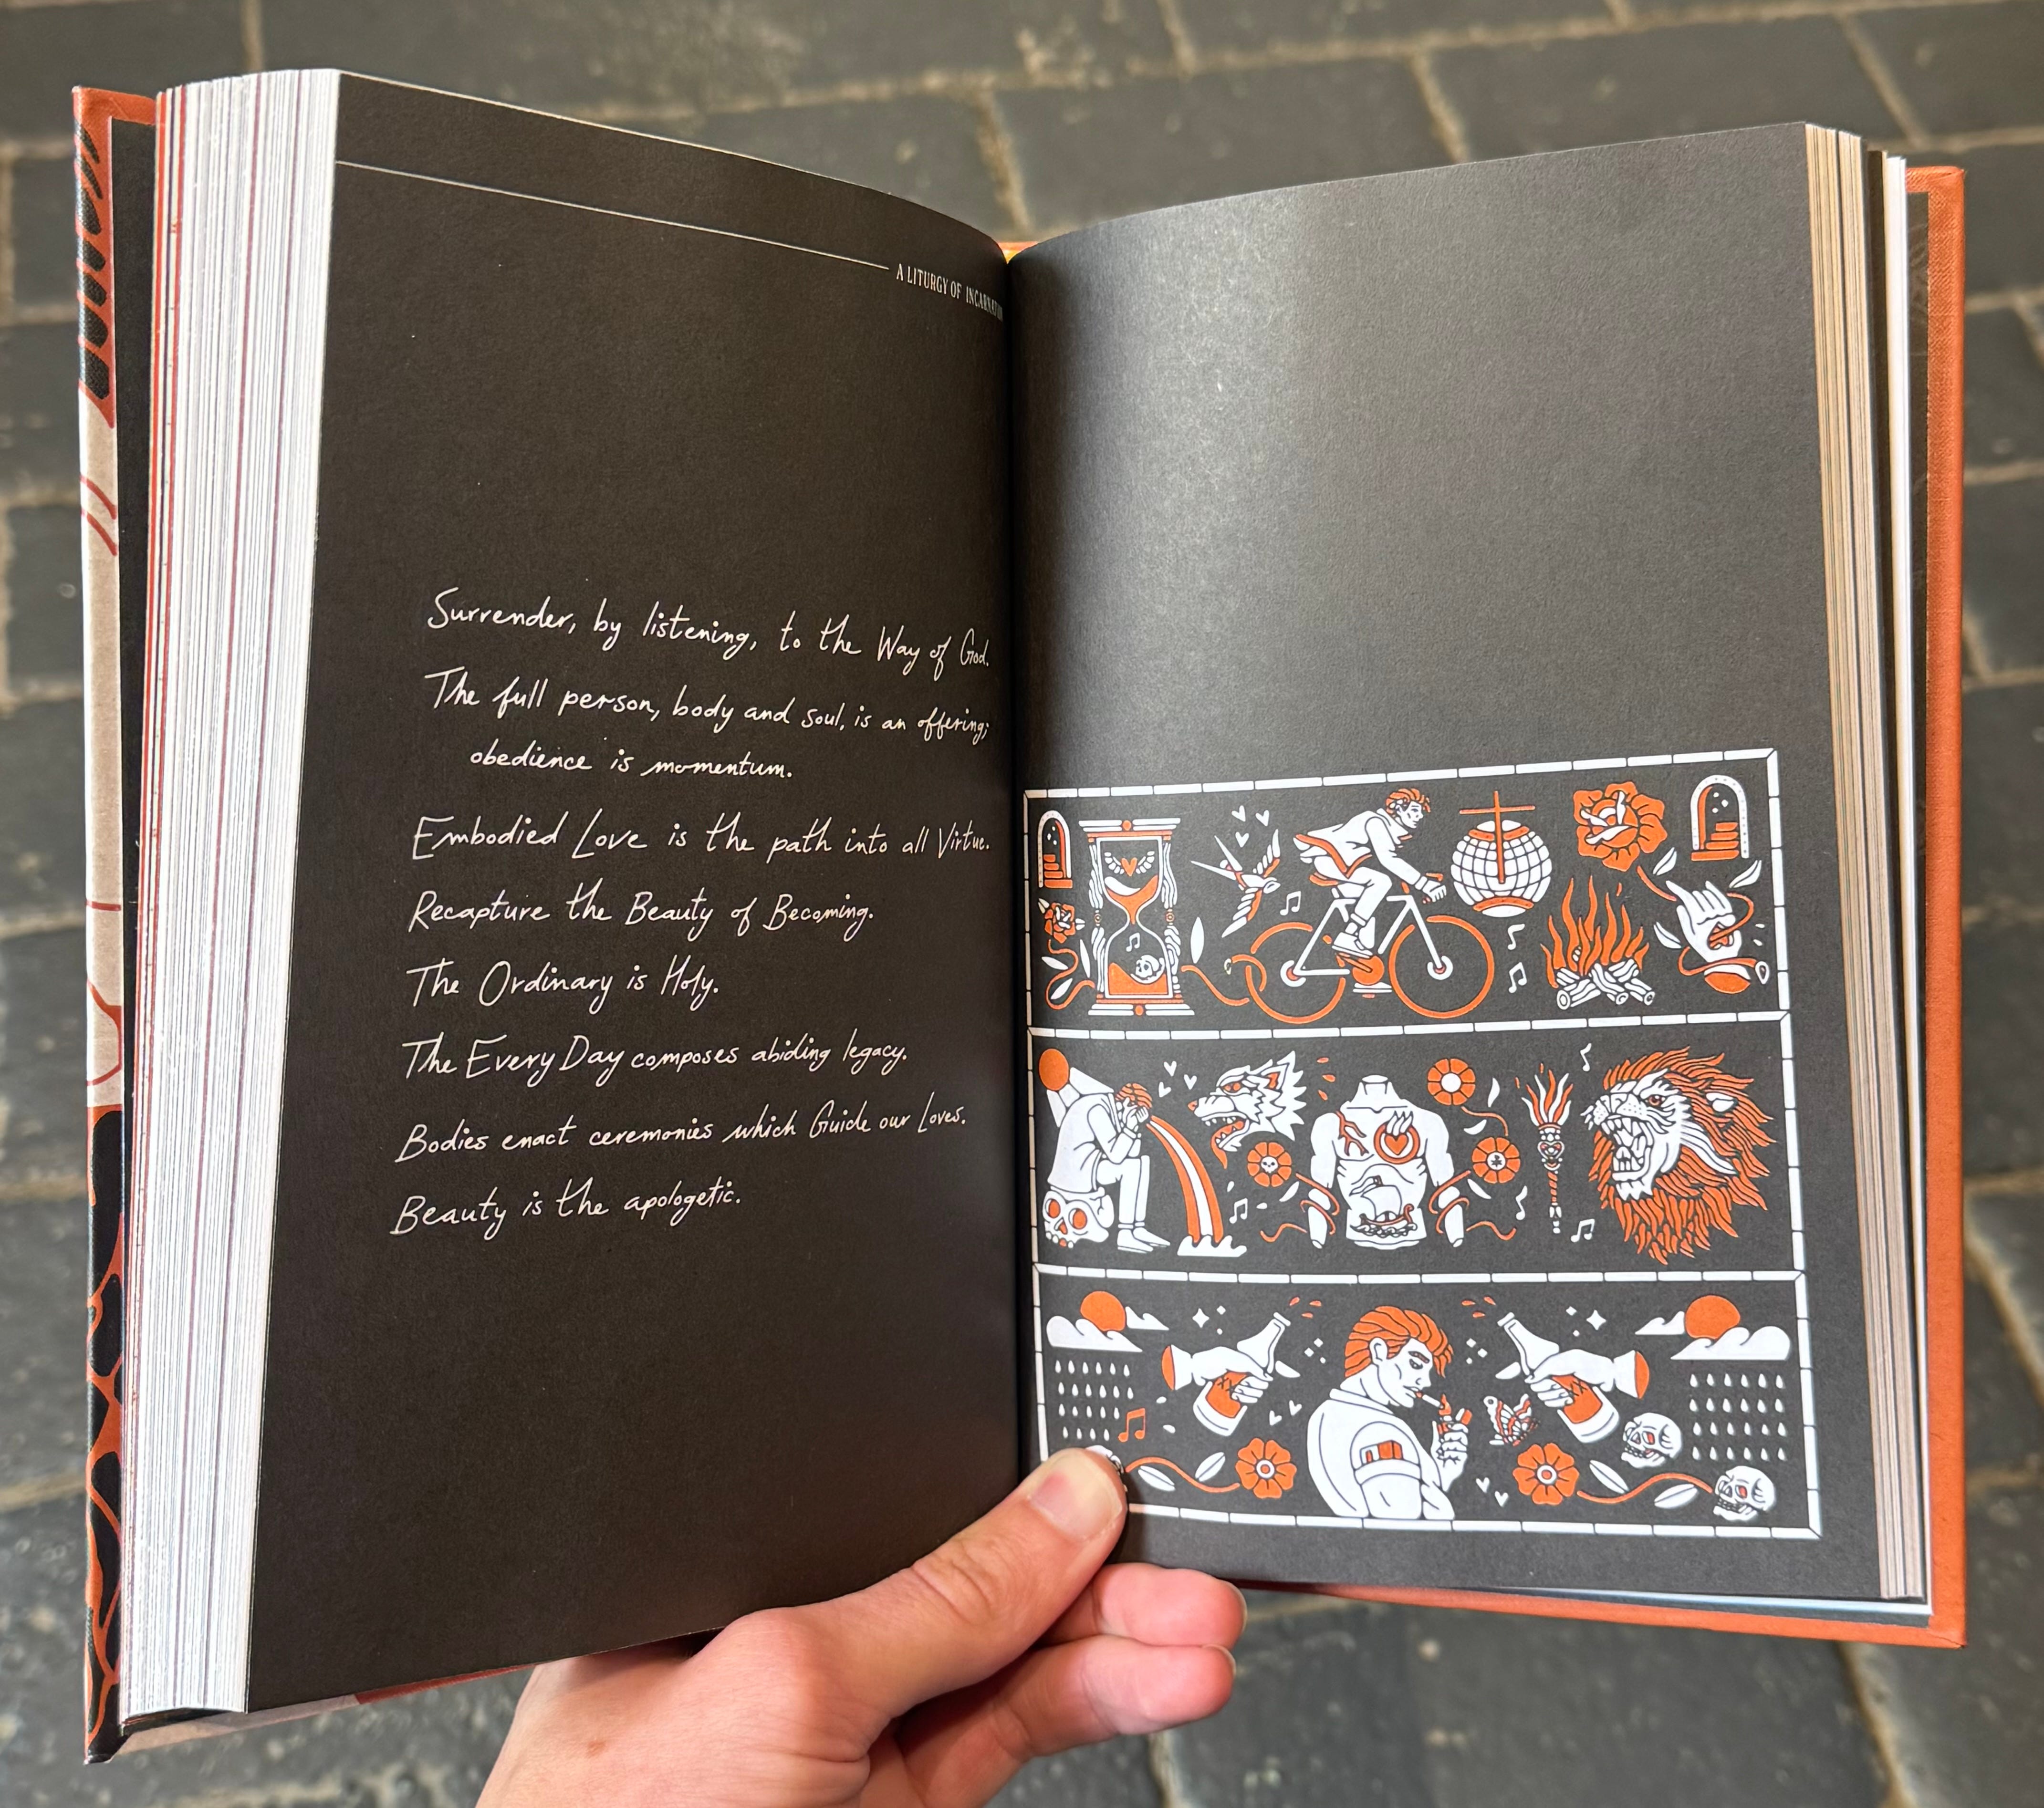 A LITURGY OF INCARNATION
Surrender, by listening, to the Way of God.
The full person, body and soul, is an offering;
obedience is momentum.
Embodied Love is the path into all Virtue.
Recapture the Beauty of Becoming.
The Ordinary is Holy.
The Every Day composes abiding legacy.
Bodies enact ceremonies which Guide our Loves.
Beauty is the apologetic.